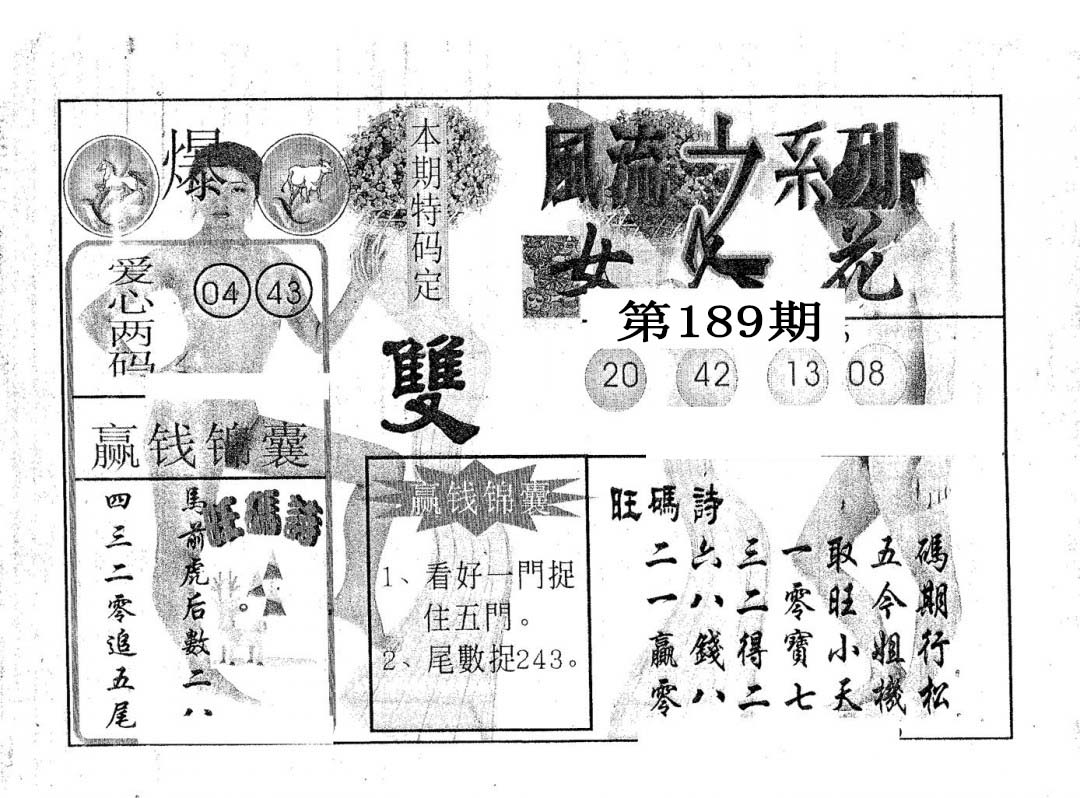 風流之系列
女人花
第189期
20 42 13 08
爆
爱心两码
04 43
本期特码定
雙
赢钱锦囊
馬前虎后數二八
四三二零追五尾
旺碼詩
赢钱锦囊
1、看好一門捉
住五門。
2、尾數捉243。
旺碼詩
碼期行松
五今姐機
取旺小天
一零寶七
三二得二
六八錢八
二一贏零